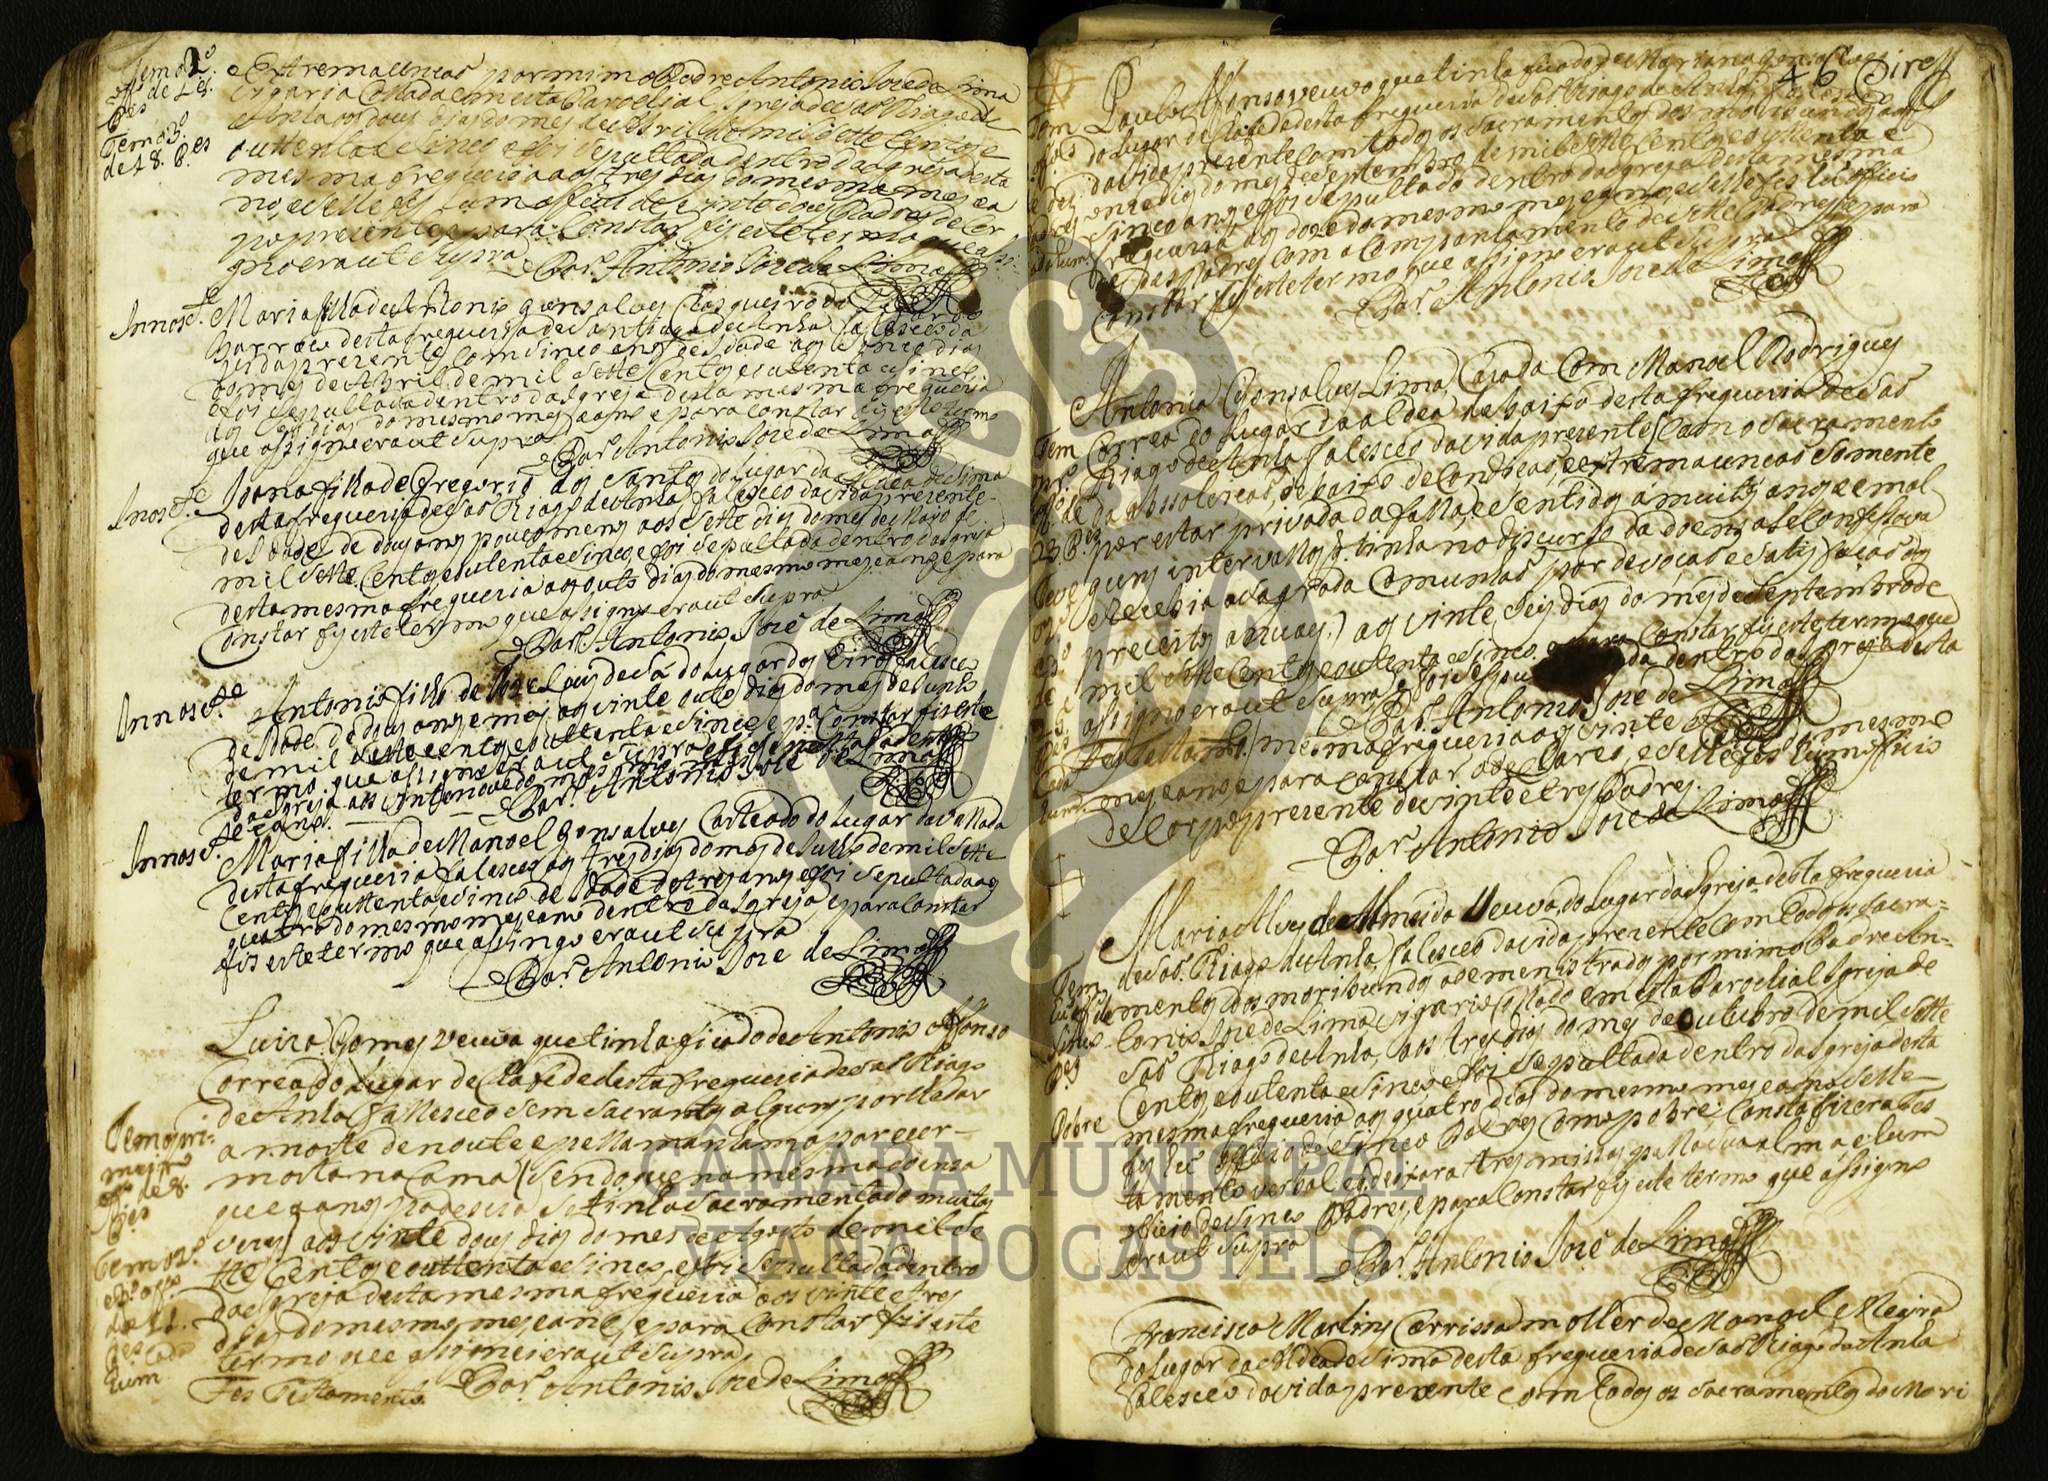 Tem o 2º
off.º de 28.
P.es
Tem o 3º
de 18. P.es
e Extremaunçaõ por mim o Padre Antonio Joze de Lima
Vigario Collado em esta Parochial Igreja de Saõ Thiago de
Anha aos dous dias do mes de Abril de mil e sette centos e
outtenta e sinco e foi sepultada dentro da Igreja desta
mesma freguezia aos tres dias do mesmo mes e a
no, e selhe fes hum officio de vinte e dous Padres de Cor
po prezente e para constar fis este termo que a
signo era ut supra
O Par.º Antonio Joze de Lima
Innosc.te Maria filha de Antonio Gonsalves do lugar do
Barraco desta freguezia de Santiago de Anha faleceo da
vida prezente com sinco annos de Idade aos sinco dias
do mes de Abril de mil e sette centos e outenta e sinco
e foi sepultada dentro da Igreja desta mesma freguezia
aos seis dias do mesmo mes e anno e para constar fiz este termo
que assigno era ut supra
O Par.º Antonio Joze de Lima
Innosc.te Joana filha de Gregorio dos Santos do lugar da Aldea de Sima
desta freguezia de Saõ Thiago de Anha faleceo da vida prezente
de Idade de dous annos pouco menos aos sette dias do mes de Mayo de
mil e sette centos e outenta e sinco e foi sepultada dentro da Igreja
desta mesma freguezia aos outo dias do mesmo mes e anno e para
Constar fiz este termo que assigno era ut supra
O Par.º Antonio Joze de Lima
Innosc.te Antonio filho de Joze Luis de Sá do lugar dos Eiros faleceo
de Idade de dous annos e meyo aos vinte e oute dias do mes de Junho
de mil e sette centos e outtenta e sinco e p.ª Constar fis este
termo que assigno era ut supra e foi sepultado dentro
da Igreja aos vinte nove do mesmo
mes e anno. O Par.º Antonio Joze de Lima
Innosc.te Maria filha de Manoel Gonsalves Carteado do lugar da Vallada
desta freguezia faleceo aos tres dias do mes de Julho de mil e sette
centos e outtenta e sinco de Idade de tres annos e foi sepultada aos
quatro do mesmo mes e anno dentro da Igreja e para Constar
fis este termo que assigno era ut supra
O Par.º Antonio Joze de Lima
Luiza Gomes veuva que tinha ficado de Antonio Affonso
Correa do Lugar de Chafé desta freguezia de Saõ Thiago
de Anha falleceo sem Sacramentos alguns por lhe dar
a morte de noute, e pella manham aparecer
morta na Cama (sendo que na mesma doensa
que annos padescia setinha Sacramentado muitas
vezes) aos vinte dous dias do mes de Agosto de mil se
tte Centos e outtenta e sinco, e foi sepultada dentro
da Igreja desta mesma freguezia aos vinte e tres
dias do mesmo mes e anno, e para Constar fis este
termo que assignei era ut supra
Fes Testamento O Par.º Antonio Joze de Lima
Tem o pri-
meiro
off.º de 8.
P.es
Tem o 2.º
e 3.º off.os
de 11.
P.es
Cada
hum
46
Paulo Affonso veuvo que tinha ficado de Mariana Gonsalves
do Lugar de Chafé desta freguezia de Saõ Thiago de Anha faleceo
da vida prezente com todos os Sacramentos dos moribundos aos
onze dias do mes de septembro de mil e sette centos e outtenta e
sinco annos e foi sepultado dentro da Igreja desta mesma
freguezia aos doze do mesmo mes e anno, e selhe fes hú officio
de dez Padres com acompanhamento de sette Padres e para
Constar fiz este termo que assigno era ut supra
O Par.º Antonio Joze de Lima
Antonia Gonsalves Lima, Cazada com Manoel Rodrigues
Correa do Lugar da aldea debaixo desta freguezia de Saõ
Thiago de Anha, falesceo da vida prezente com o Sacramento
da absoluiçaõ debaixo de Condiçaõ, e extremaunçaõ somente
por estar privada da falla, e sentidos á muitos annos e em al
guns intervallos q̃ tinha no discurso da doensa se confessava
e recebia a Sagrada Comunhaõ por devoçaõ e satisfaçaõ dos
preceitos annuaes.) aos vinte seis dias do mes de septembro de
mil sette centos e outenta e sinco. e para Constar fis este termo que
assigno era ut supra e foi sepultada dentro da Igreja desta
O Par.º Antonio Joze de Lima
Fes testam.to mesma freguezia aos vinte do mesmo
mes e anno e para constar a declaro, e selhe fes hum officio
de Corpo prezente de vinte e tres Padres.
O Par.º Antonio Joze de Lima
Maria Alves de Almeida Veuva, do Lugar da Igreja desta freguezia
de Saõ Thiago de Anha, falesceo da vida prezente com todos os Sacra-
mentos dos moribundos ademenistrados por mim o Padre An-
tonio Joze de Lima vigario Collado em esta Parochial Igreja de
Saõ Thiago de Anha, aos tres dias do mes de outubro de mil e sette
Centos e outenta e sinco e foi sepultada dentro da Igreja desta
mesma freguezia aos quatro dias do mesmo mes e anno selhe
fes hú officio de sinco Padres como pobre; Consta fizera tes
tamento verbal e deixara tres missas p.lla sua alma e hum
officio de sinco Padres, e para constar fiz este termo que assigno
era ut supra
O Par.º Antonio Joze de Lima
Pobre
Francisca Martins Carrissa molher de Manoel Meira
do Lugar da Aldea de Sima desta freguezia de Saõ Thiago de Anha
falesceo da vida prezente com todos os Sacramentos do Mori
CÂMARA MUNICIPAL
VIANA DO CASTELO